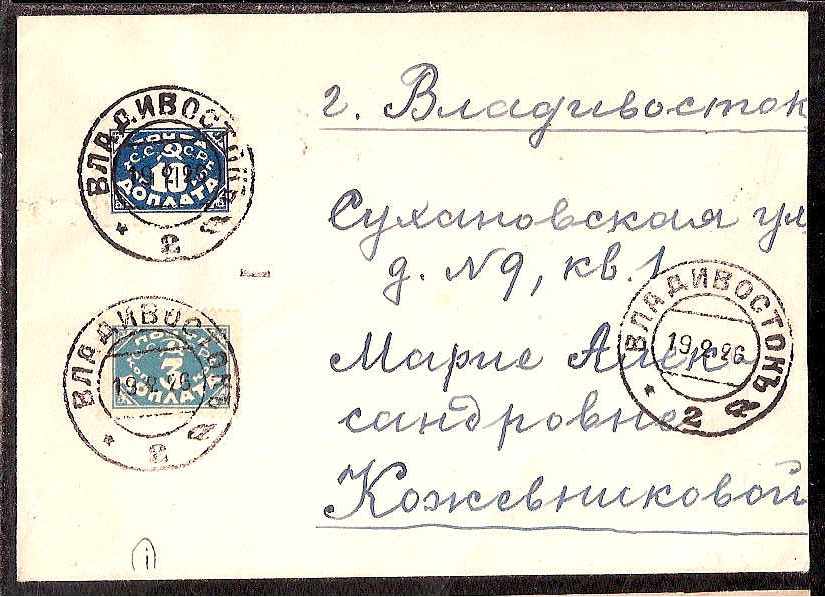 г. Владивосток
Сухановская ул
д. № 9, кв. 1
Марие Алек-
сандровне
Кожевниковой
ВЛАДИВОСТОКЪ
19 2 26
2
ПОЧТА
С.С.С.Р.
10
ДОПЛАТА
ВЛАДИВОСТОКЪ
19 2 26
2
3
ДОПЛАТА
ВЛАДИВОСТОКЪ
19 2 26
2
i